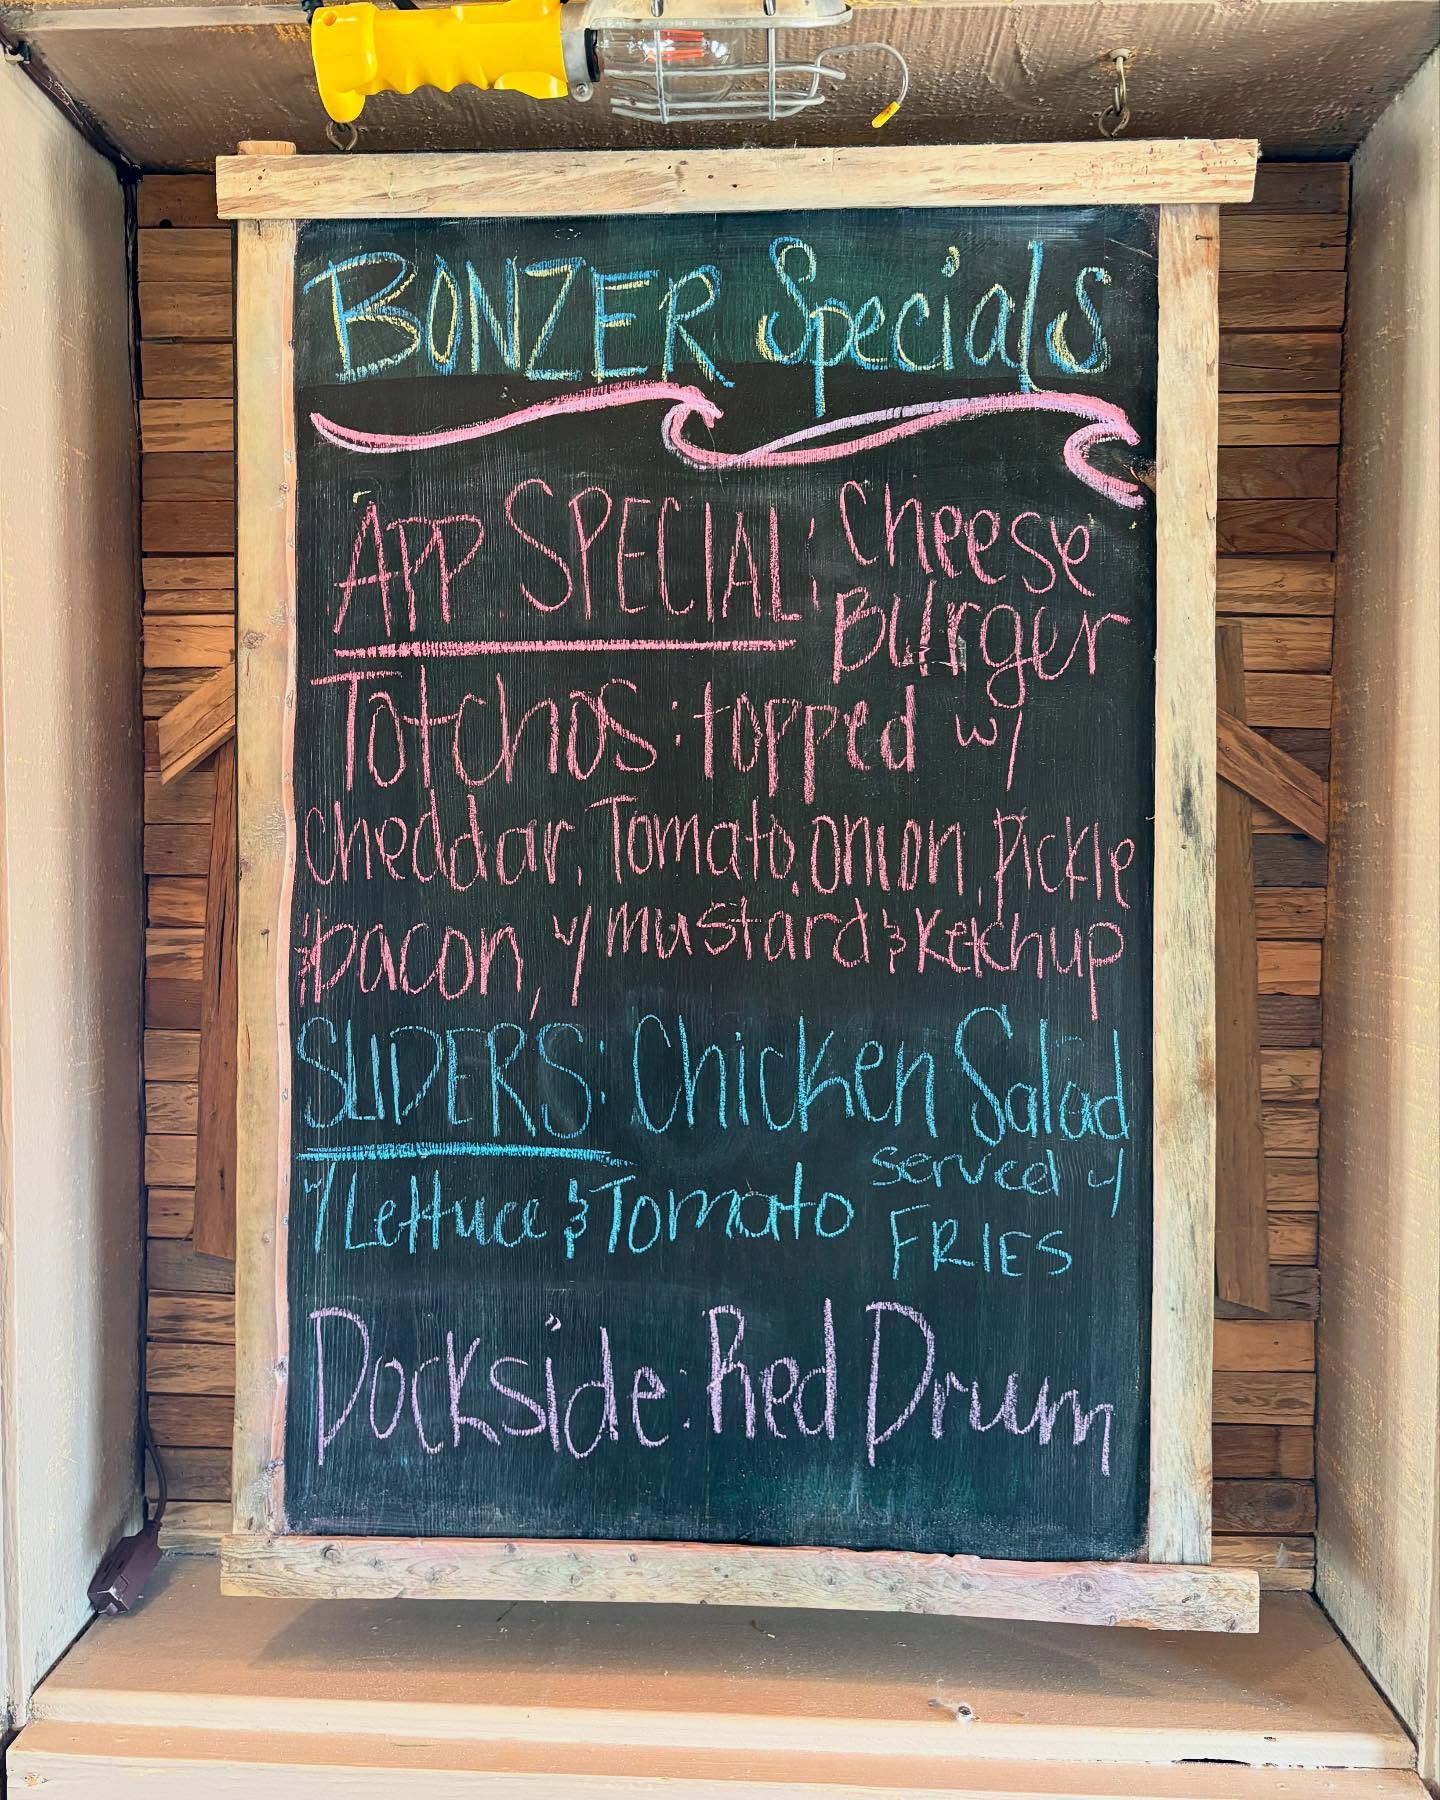 BONZER Specials
APP SPECIAL: Cheese
Burger
Totchos: topped w/
cheddar, Tomato, onion, pickle
& bacon, w/ mustard & ketchup
SLIDERS: Chicken Salad
w/ Lettuce & Tomato served w/
FRIES
Dockside: Red Drum